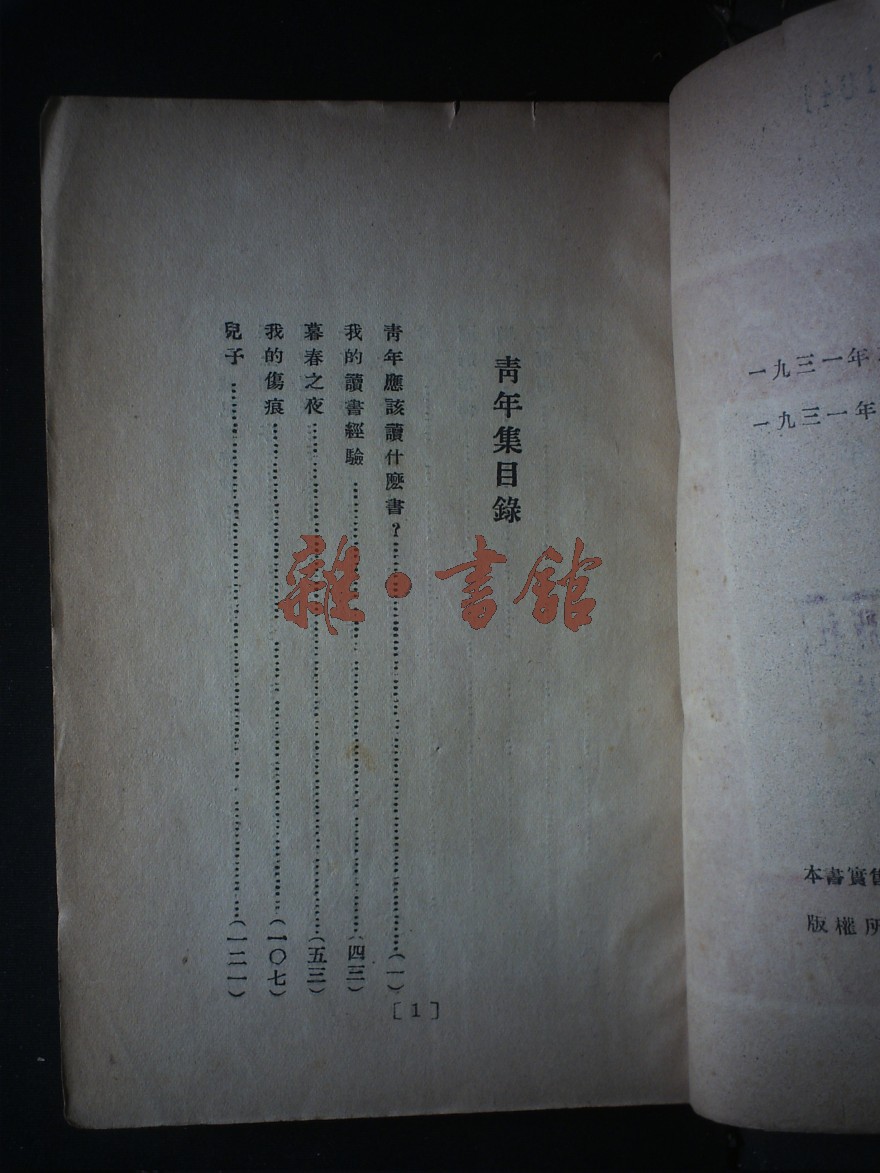 一九三一年
一九三一年
本書實售
版權所
青年集目錄
青年應該讀什麽書？……(一)
我的讀書經驗……(四三)
暮春之夜……(五三)
我的傷痕……(一〇七)
兒子……(一二一)
[1]
雜·書館